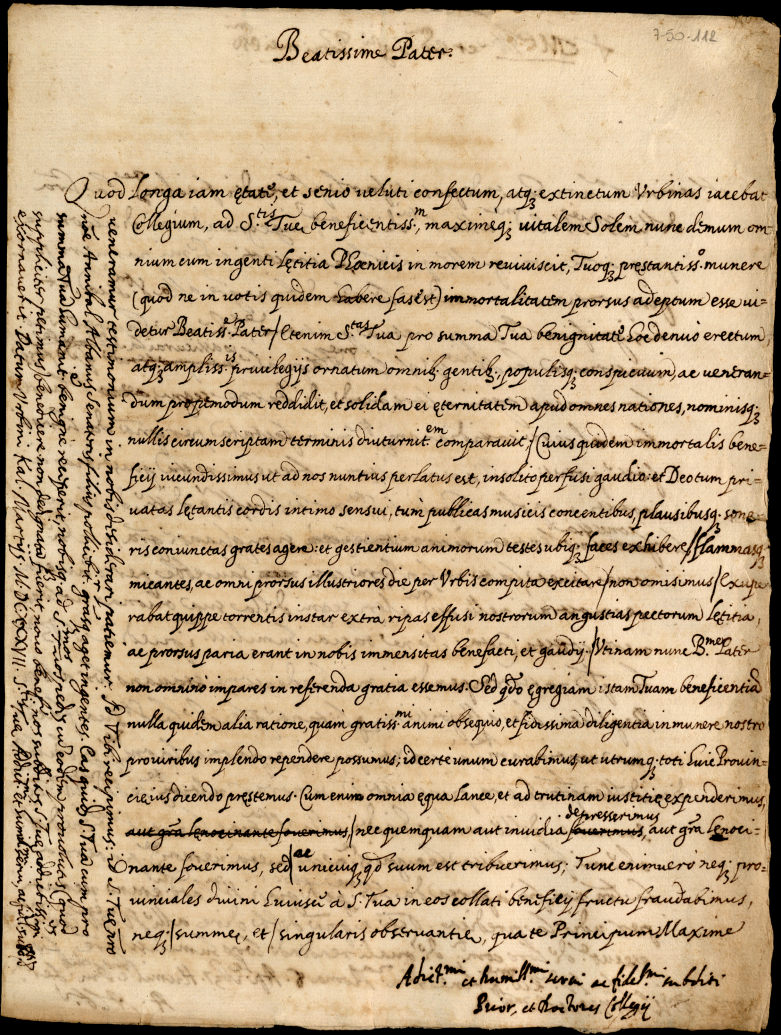 7-50-112
Beatissime Pater.
Quod longa iam ętatę, et senio veluti confectum, atq; extinctum Vrbinas iacebat
Collegium, ad S.tis Tuę beneficentiss.m, maximeq; vitalem Solem nunc demum om
nium cum ingenti lętitia Phœnicis in morem reviviscit, Tuoq; pręstantiss.o munere
(quod ne in votis quidem habere fas est) immortalitatem prorsus adeptum esse vi-
detur Beatiss.e Pater/ Etenim S.tas Tua pro summa Tua benignitatę hoc denuo erectum,
atq; ampliss.is privilegijs ornatum omnib; gentib; populisq; conspicuum, ac veneran=
dum propemodum reddidit, et solidam ei ęternitatem apud omnes nationes, nominisq;
nullis circumscriptam terminis diuturnit.em comparavit/ Cuius quidem immortalis bene=
ficij iucundissimus ut ad nos nuntius perlatus est, insolito perfusi gaudio: et Deo tum pri-
vatas lętantis cordis intimo sensui, tum publicas musicis concentibus, plausibusq; sono-
ris coniunctas grates agere: et gestientium animorum testes ubiq; faces exhibere, flammasq;
micantes, ac omni prorsus illustriores die per Vrbis compita excitare/ non omisimus/ Exupe
rabat quippe torrentis instar extra ripas effusi nostrorum angustias pectorum lętitia,
ac prorsus paria erant in nobis immensitas benefacti, et gaudij:/ Vtinam nunc B.me Pater
non omnino impares in referenda gratia essemus. Sed q̃do egregiam istam Tuam beneficentiã
nulla quidem alia ratione, quam gratiss.mi animi obsequio, et fidissima diligentia in munere nostro
pro viribus implendo rependere possumus; id certe unum curabimus, ut utrumq; toti huic Provin=
cię ius dicendo pręstemus. Cum enim omnia ęqua lance, et ad trutinam iustitię expenderimus,
aut grã lenocinante foverimus,/ nec quemquam aut invidia foverimus depresserimus, aut grã lenoci-
nante foverimus, sed/ ac unicuiq; q̃d suum est tribuerimus; Tunc enimvero neq; pro-
vinciales divini huiuscẽ à S. Tua in eos collati beneficij fructu fraudabimus,
neq;/ summę, et/ singularis observantię, qua te Principium Maxime
veneramur testimonium in nobis desiderari patiemur. Id Tibi recipimus: id S. Tuę pro
nõe Annibal Albanus
summa Tua humanit. benigne recipere, nobisq; ad S. Tuę pedes
suppliciter petimus
exornavit. Datum Vrbini Kal. Martij. M.DCCXVII. S. Tuę
Adict.mi et humill.mi servi ac fidel.mi subditi
Prior, et Doctores Collegij